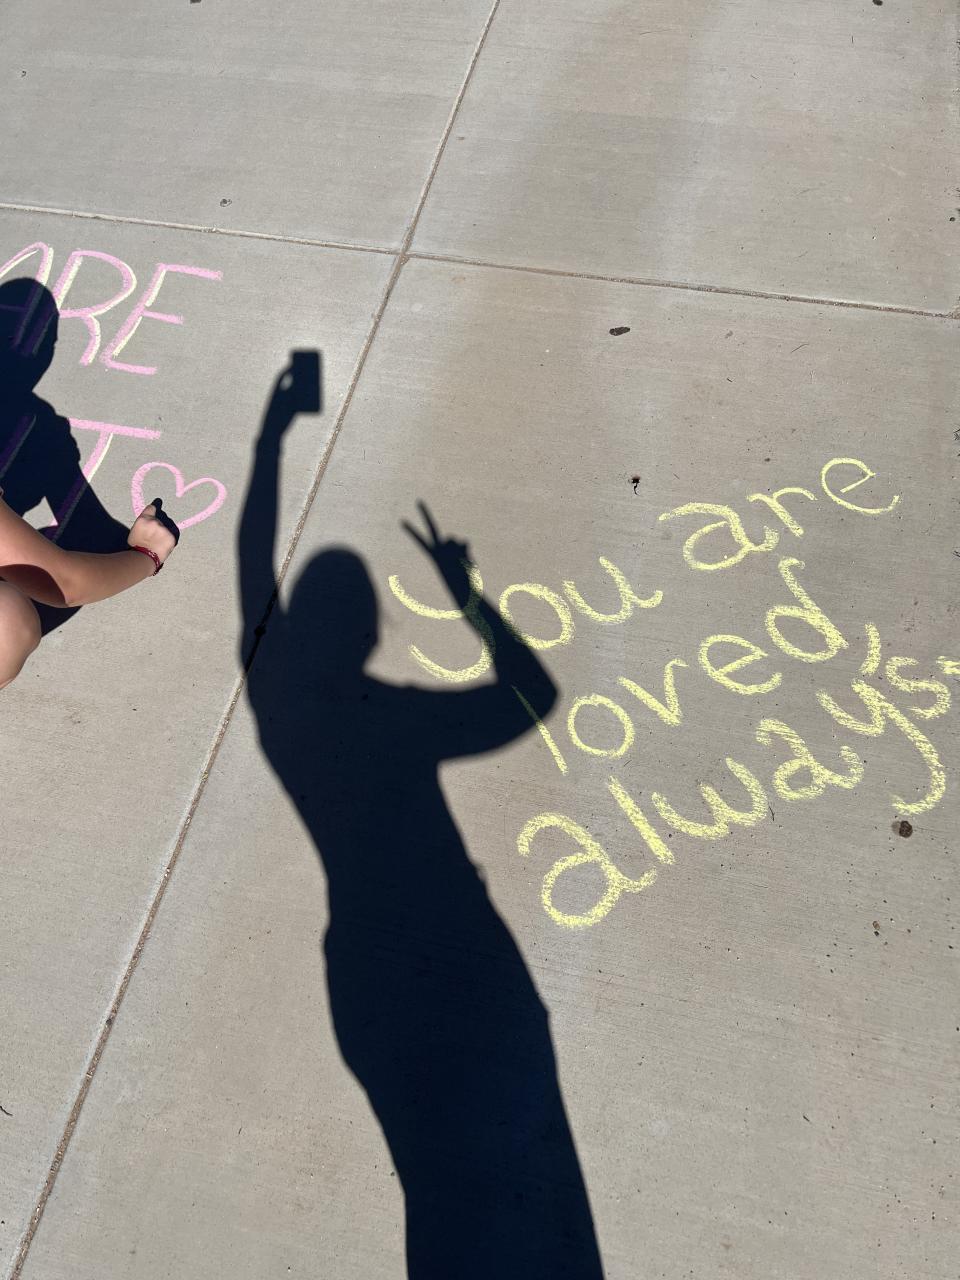 ARE
You are
loved,
always